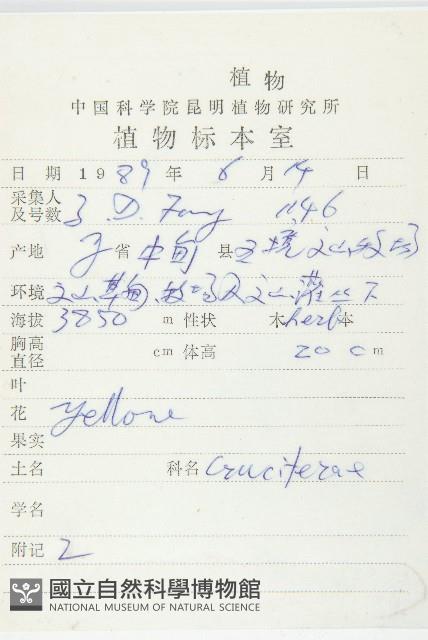 植物
中国科学院昆明植物研究所
植物标本室
日 期 1989 年 6 月 14 日
采集人
及号数 Z. D. Fang 1146
产地 省 中甸 县
环境 高山草甸、牧场及 灌丛下
海拔 3850 m 性状 木herb本
胸高
直径 cm 体高 20 cm
叶
花 yellow
果实
土名 科名 Cruciferae
学名
附记 2
國立自然科學博物館
NATIONAL MUSEUM OF NATURAL SCIENCE